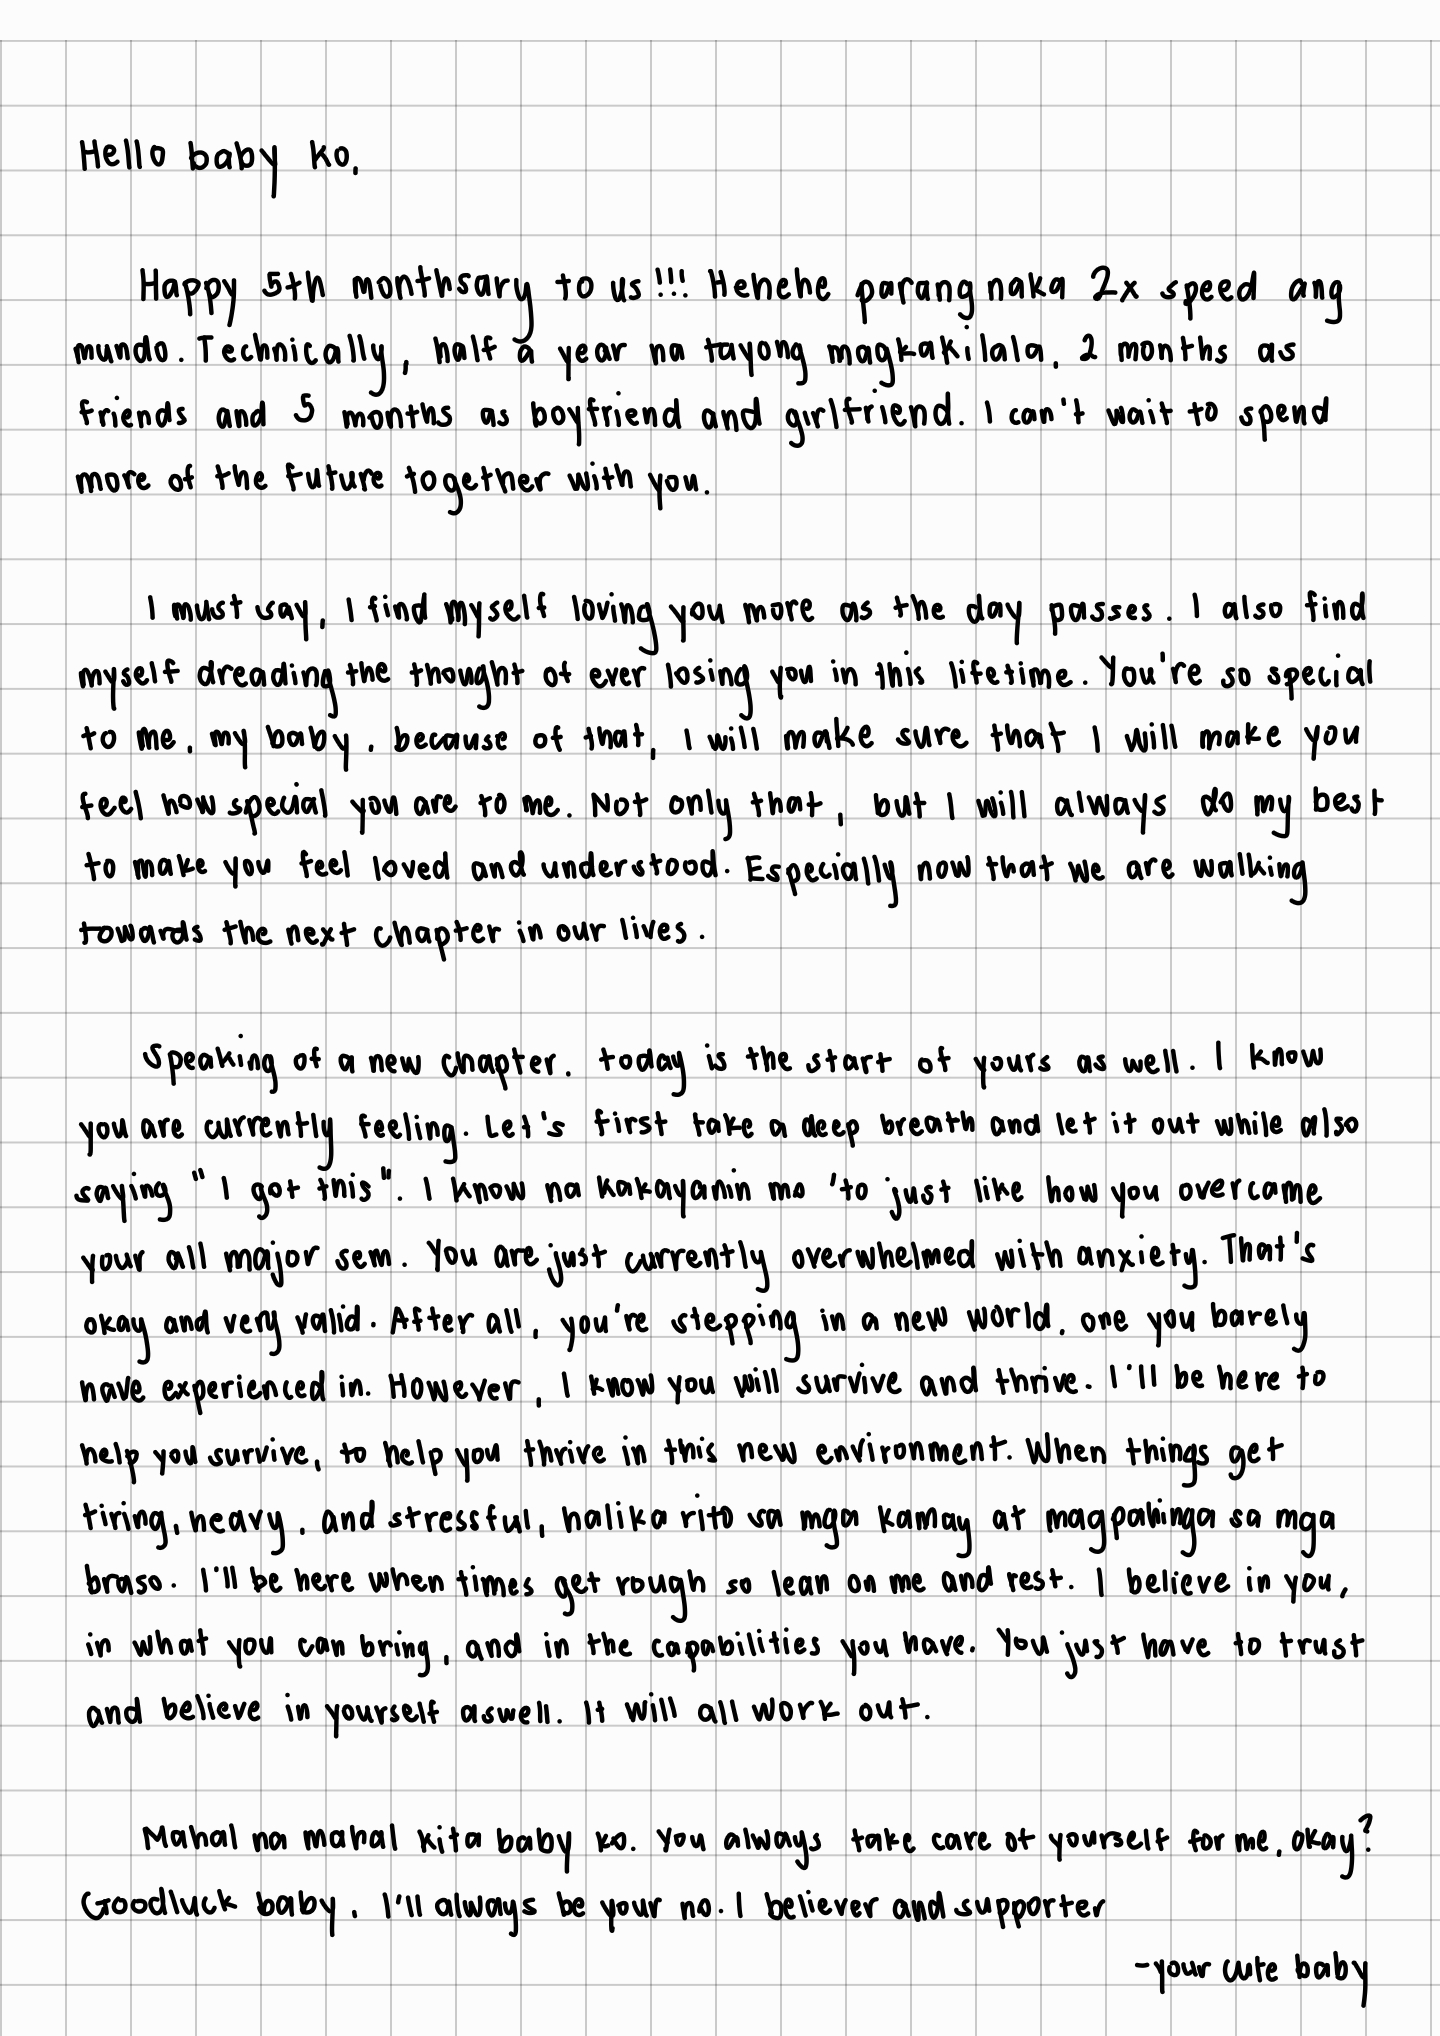 Hello baby ko,
Happy 5th monthsary to us!!! Hehehe parang naka 2x speed ang
mundo. Technically, half a year na tayong magkakilala, 2 months as
friends and 5 months as boyfriend and girlfriend. I can't wait to spend
more of the future together with you.
I must say, I find myself loving you more as the day passes. I also find
myself dreading the thought of ever losing you in this lifetime. You're so special
to me, my baby, because of that, I will make sure that I will make you
feel how special you are to me. Not only that, but I will always do my best
to make you feel loved and understood. Especially now that we are walking
towards the next chapter in our lives.
Speaking of a new chapter, today is the start of yours as well. I know
you are currently feeling. Let's first take a deep breath and let it out while also
saying "I got this". I know na kakayanin mo 'to just like how you overcame
your all major sem. You are just currently overwhelmed with anxiety. That's
okay and very valid. After all, you're stepping in a new world, one you barely
have experienced in. However, I know you will survive and thrive. I'll be here to
help you survive, to help you thrive in this new environment. When things get
tiring, heavy, and stressful, halika rito sa mga kamay at magpahinga sa mga
braso. I'll be here when times get rough so lean on me and rest. I believe in you,
in what you can bring, and in the capabilities you have. You just have to trust
and believe in yourself aswell. It will all work out.
Mahal na mahal kita baby ko. You always take care of yourself for me, okay?
Goodluck baby, I'll always be your no. 1 believer and supporter
-your cute baby